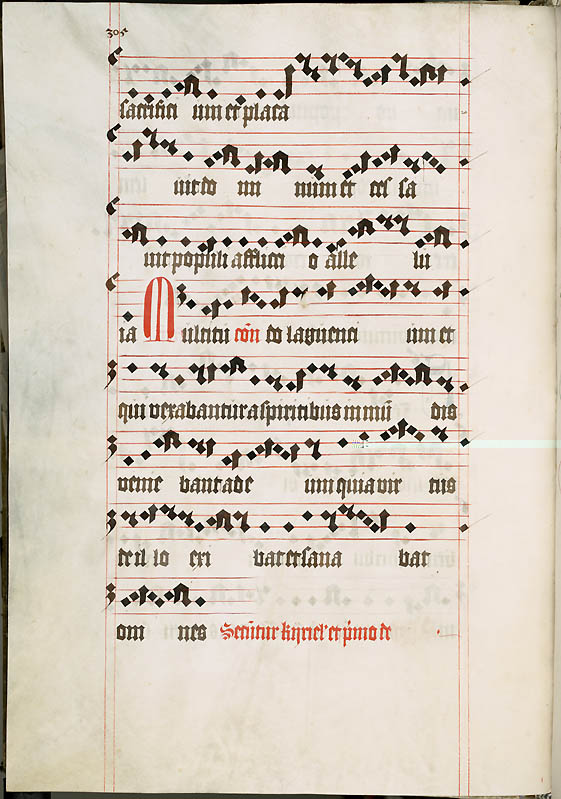 305
sacrifici um et placa
uit do mi num et ces sa
uit populi afflicti o alle lu
ia Multitu con do laguenti um et
qui vexabantur a spiritibus inmu dis
venie bant ad e um quia vir tus
de il lo exi bat et sana bat
om nes Secuntur kyriel' et primo de